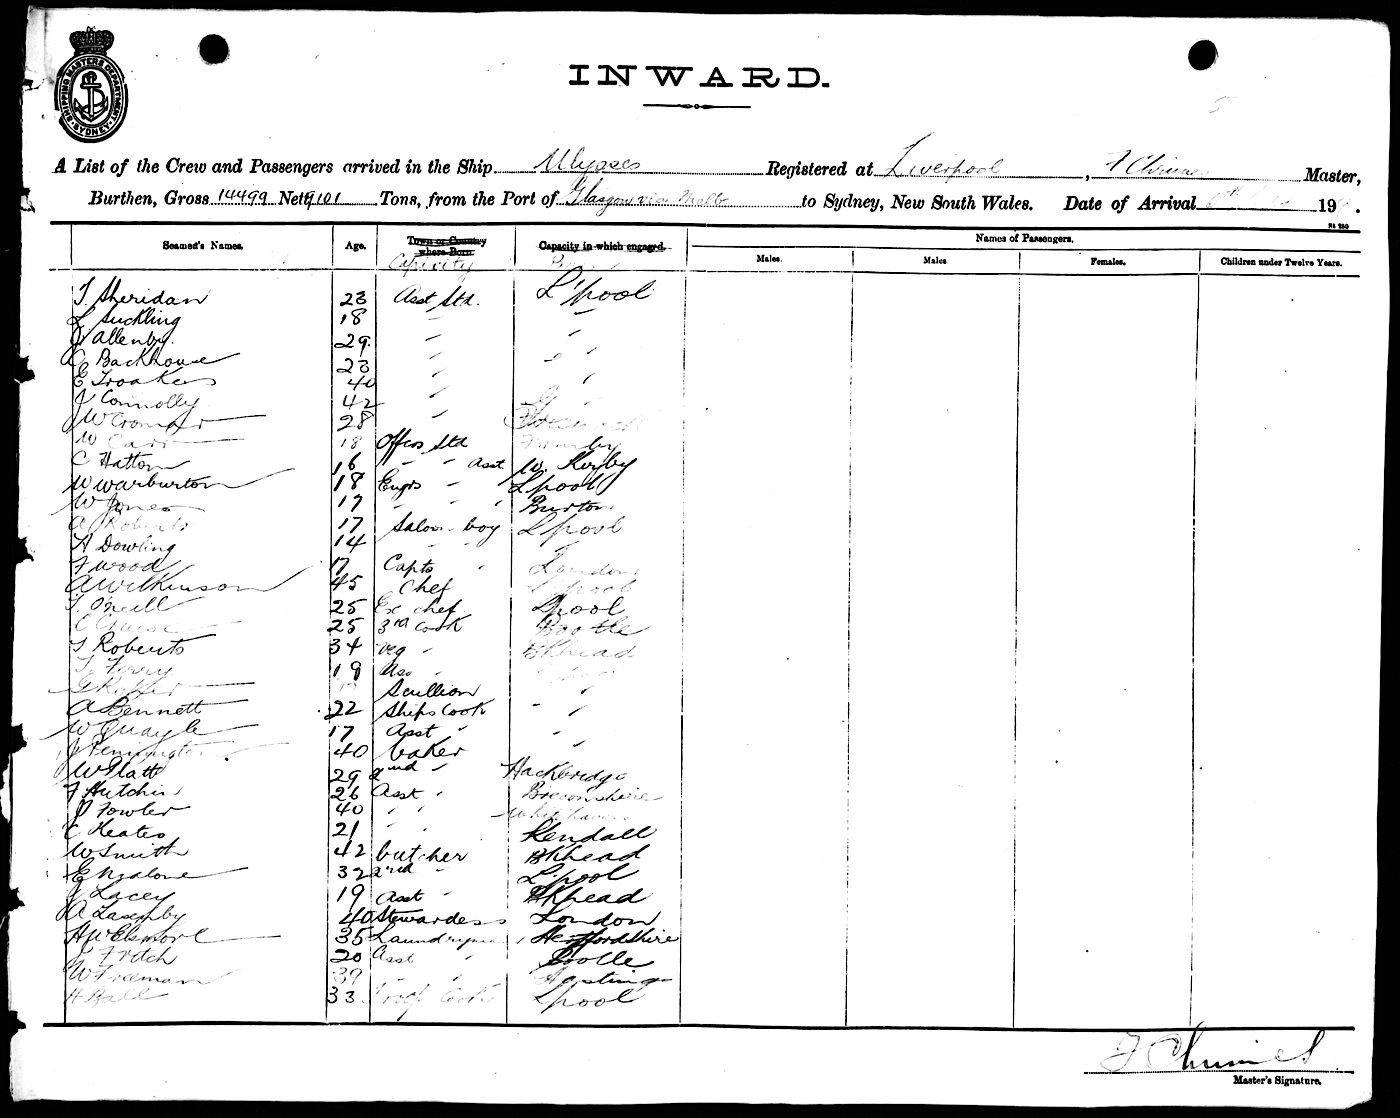 SHIPPING MASTERS DEPARTMENT
SYDNEY
INWARD.
A List of the Crew and Passengers arrived in the Ship Ulysses Registered at Liverpool, Master,
Burthen, Gross 14499 Nett 9101 Tons, from the Port of Glasgow via Melb to Sydney, New South Wales. Date of Arrival 19 .
Seamed's Names. Age. Town or Country where Born. Capacity in which engaged. Names of Passengers.
Capicity
Males. Males Females. Children under Twelve Years.
T. Sheridan 23 Asst Std. L'pool
L Suckling 18 " "
J Allenby. 29. " "
C Backhouse 23 " " "
E Troakes 40 " "
J Connolly 42 "
J W Cromper 28 "
W Carr 18 Offcrs Std Formby
C Hatton 16 " " Asst W. Kirby
W Warburton 18 Engrs " L'pool
W Jones 17 " " " Burton
A Roberts 17 Saloon boy L'pool
H Dowling 14 " "
F Wood 17 Capts " London
A Wilkinson 45 Chef L'pool
T. O'neill 25 Ex chef L'pool
25 3rd Cook Bootle
T Roberts 34 Veg " BKhead
T. Ferry 19 Ass "
Scullion "
A Bennett 22 Ships Cook " "
W Quayle 17 Asst " "
J Pennington 40 baker "
W Platt 29 2nd " Hackbridge
F Hutchin 26 Asst " Breconshire
J Fowler 40 " " Whitehaven
C Keates 21 " " Kendall
W Smith 42 butcher BKhead
E 32 2nd " L'pool
J Lacey 19 Asst " BKhead
A Lasenby 40 Stewardess London
H W Elsmore 35 Laundryman Hertfordshire
J Fritch 20 Asst " Bootle
W Freeman 39 " " Hastings
H Ball 33 Troop Cook L'pool
Master's Signature.